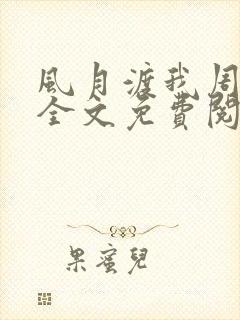 風月渡我周
全文免費閱
果蜜兒